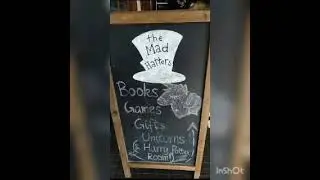 the
Mad
Hatters
Books
Games
Gifts
Unicorns
(& Harry Potter
Room!)
InShOt